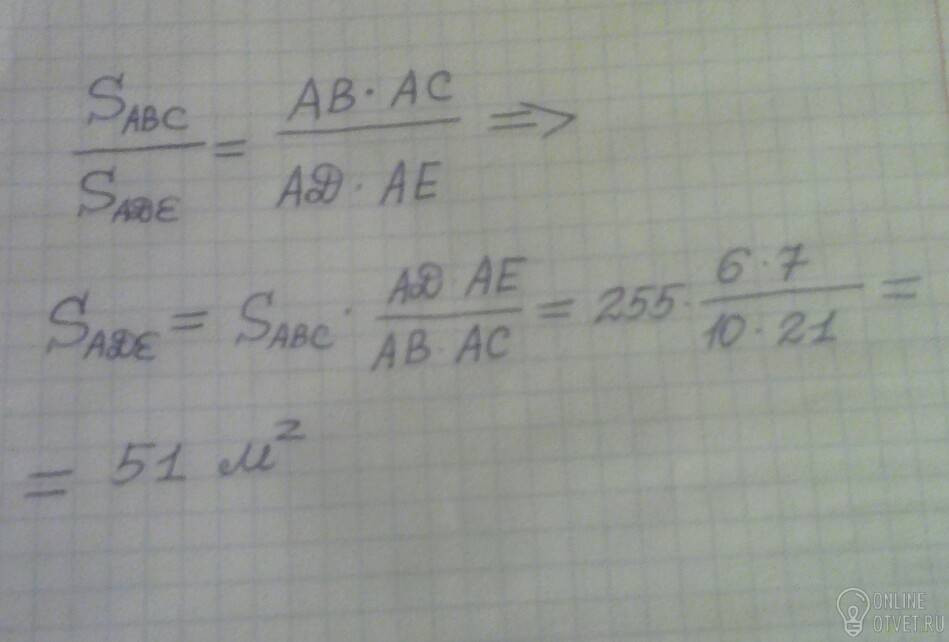 S_ABC / S_ADE = AB · AC / AD · AE =>
S_ADE = S_ABC · AD · AE / AB · AC = 255 · 6 · 7 / 10 · 21 =
= 51 м²
ONLINE
OTVET.RU